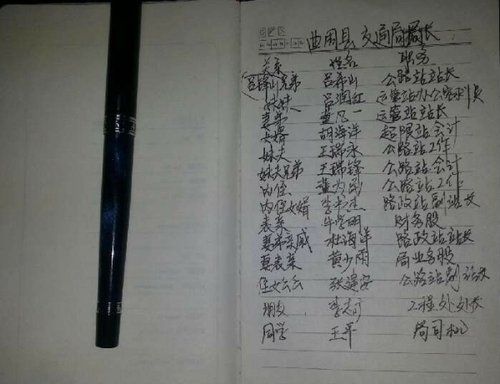 曲周县交通局局长
关系 姓名 职务
兄弟 吕希山 公路站站长
吕润红 运管站办公路
妻弟 一 运管站站长
女婿 胡海洋 超限站会计
妹夫 王瑞永 公路站工作
妹夫兄弟 王瑞锋 公路站会计
内侄 公路站工作
内侄女婿 李 路政站副站长
表亲 牛学明 财务股
妻弟亲戚 杜海洋 路政站站长
妻表亲 黄少雨 局业务股
侄女公公 张建安 公路站副站长
朋友 李 工程处处长
同学 王军 局司机